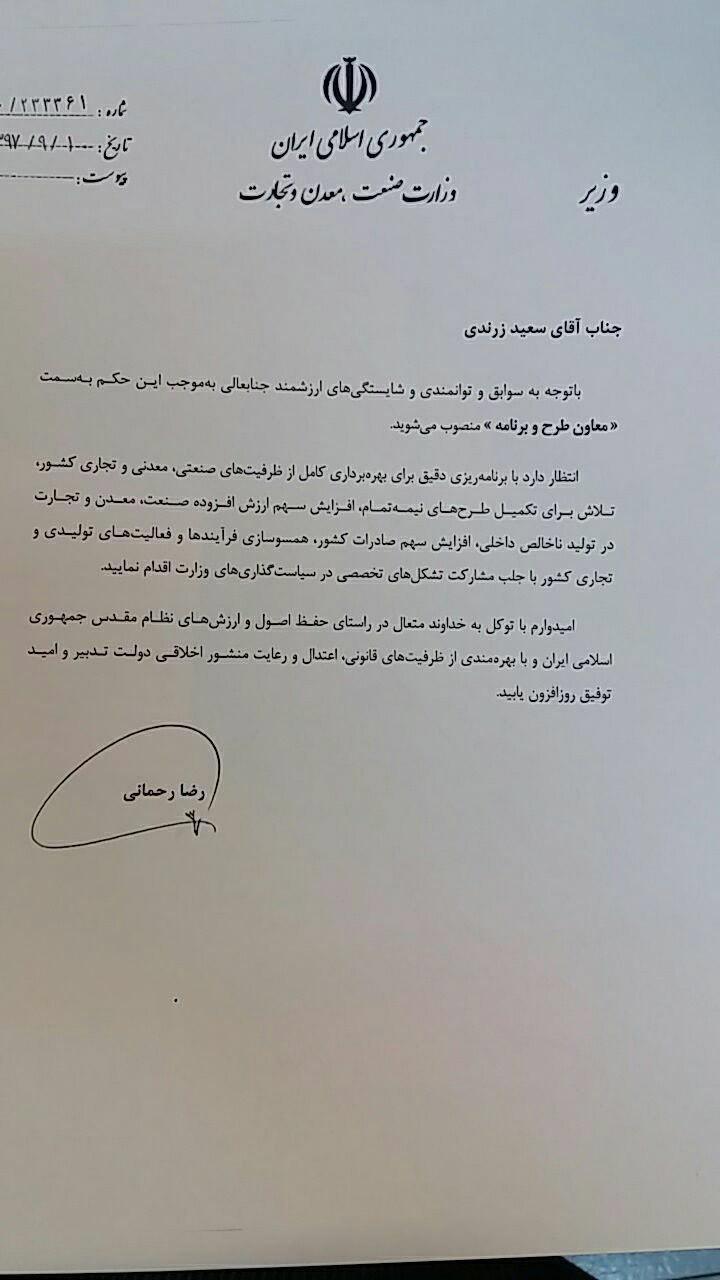 جمهوری اسلامی ایران
وزارت صنعت، معدن و تجارت
وزیر
شماره: /۲۳۳۳۶۱
تاریخ: ۳۹۷/۹/۱۰
پیوست:
جناب آقای سعید زرندی
باتوجه به سوابق و توانمندی و شایستگی‌های ارزشمند جنابعالی به‌موجب ایـن حکـم به‌سـمت
« معاون طرح و برنامه » منصوب می‌شوید.
انتظار دارد با برنامه‌ریزی دقیق برای بهره‌برداری کامل از ظرفیت‌های صنعتی، معدنی و تجاری کشور،
تـلاش بـرای تکمیـل طـرح‌هـای نیمـه‌تمـام، افـزایش سـهم ارزش افـزوده صـنعت، معـدن و تجـارت
در تولید ناخالص داخلی، افزایش سهم صادرات کشور، همسوسازی فرآیندها و فعالیت‌های تولیـدی و
تجاری کشور با جلب مشارکت تشکل‌های تخصصی در سیاست‌گذاری‌های وزارت اقدام نمایید.
امیدوارم با توکل به خداوند متعال در راستای حفـظ اصـول و ارزش‌هـای نظـام مقـدس جمهـوری
اسلامی ایران و با بهره‌مندی از ظرفیت‌های قانونی، اعتدال و رعایت منشـور اخلاقـی دولـت تـدبیر و امیـد
توفیق روزافزون یابید.
رضا رحمانی